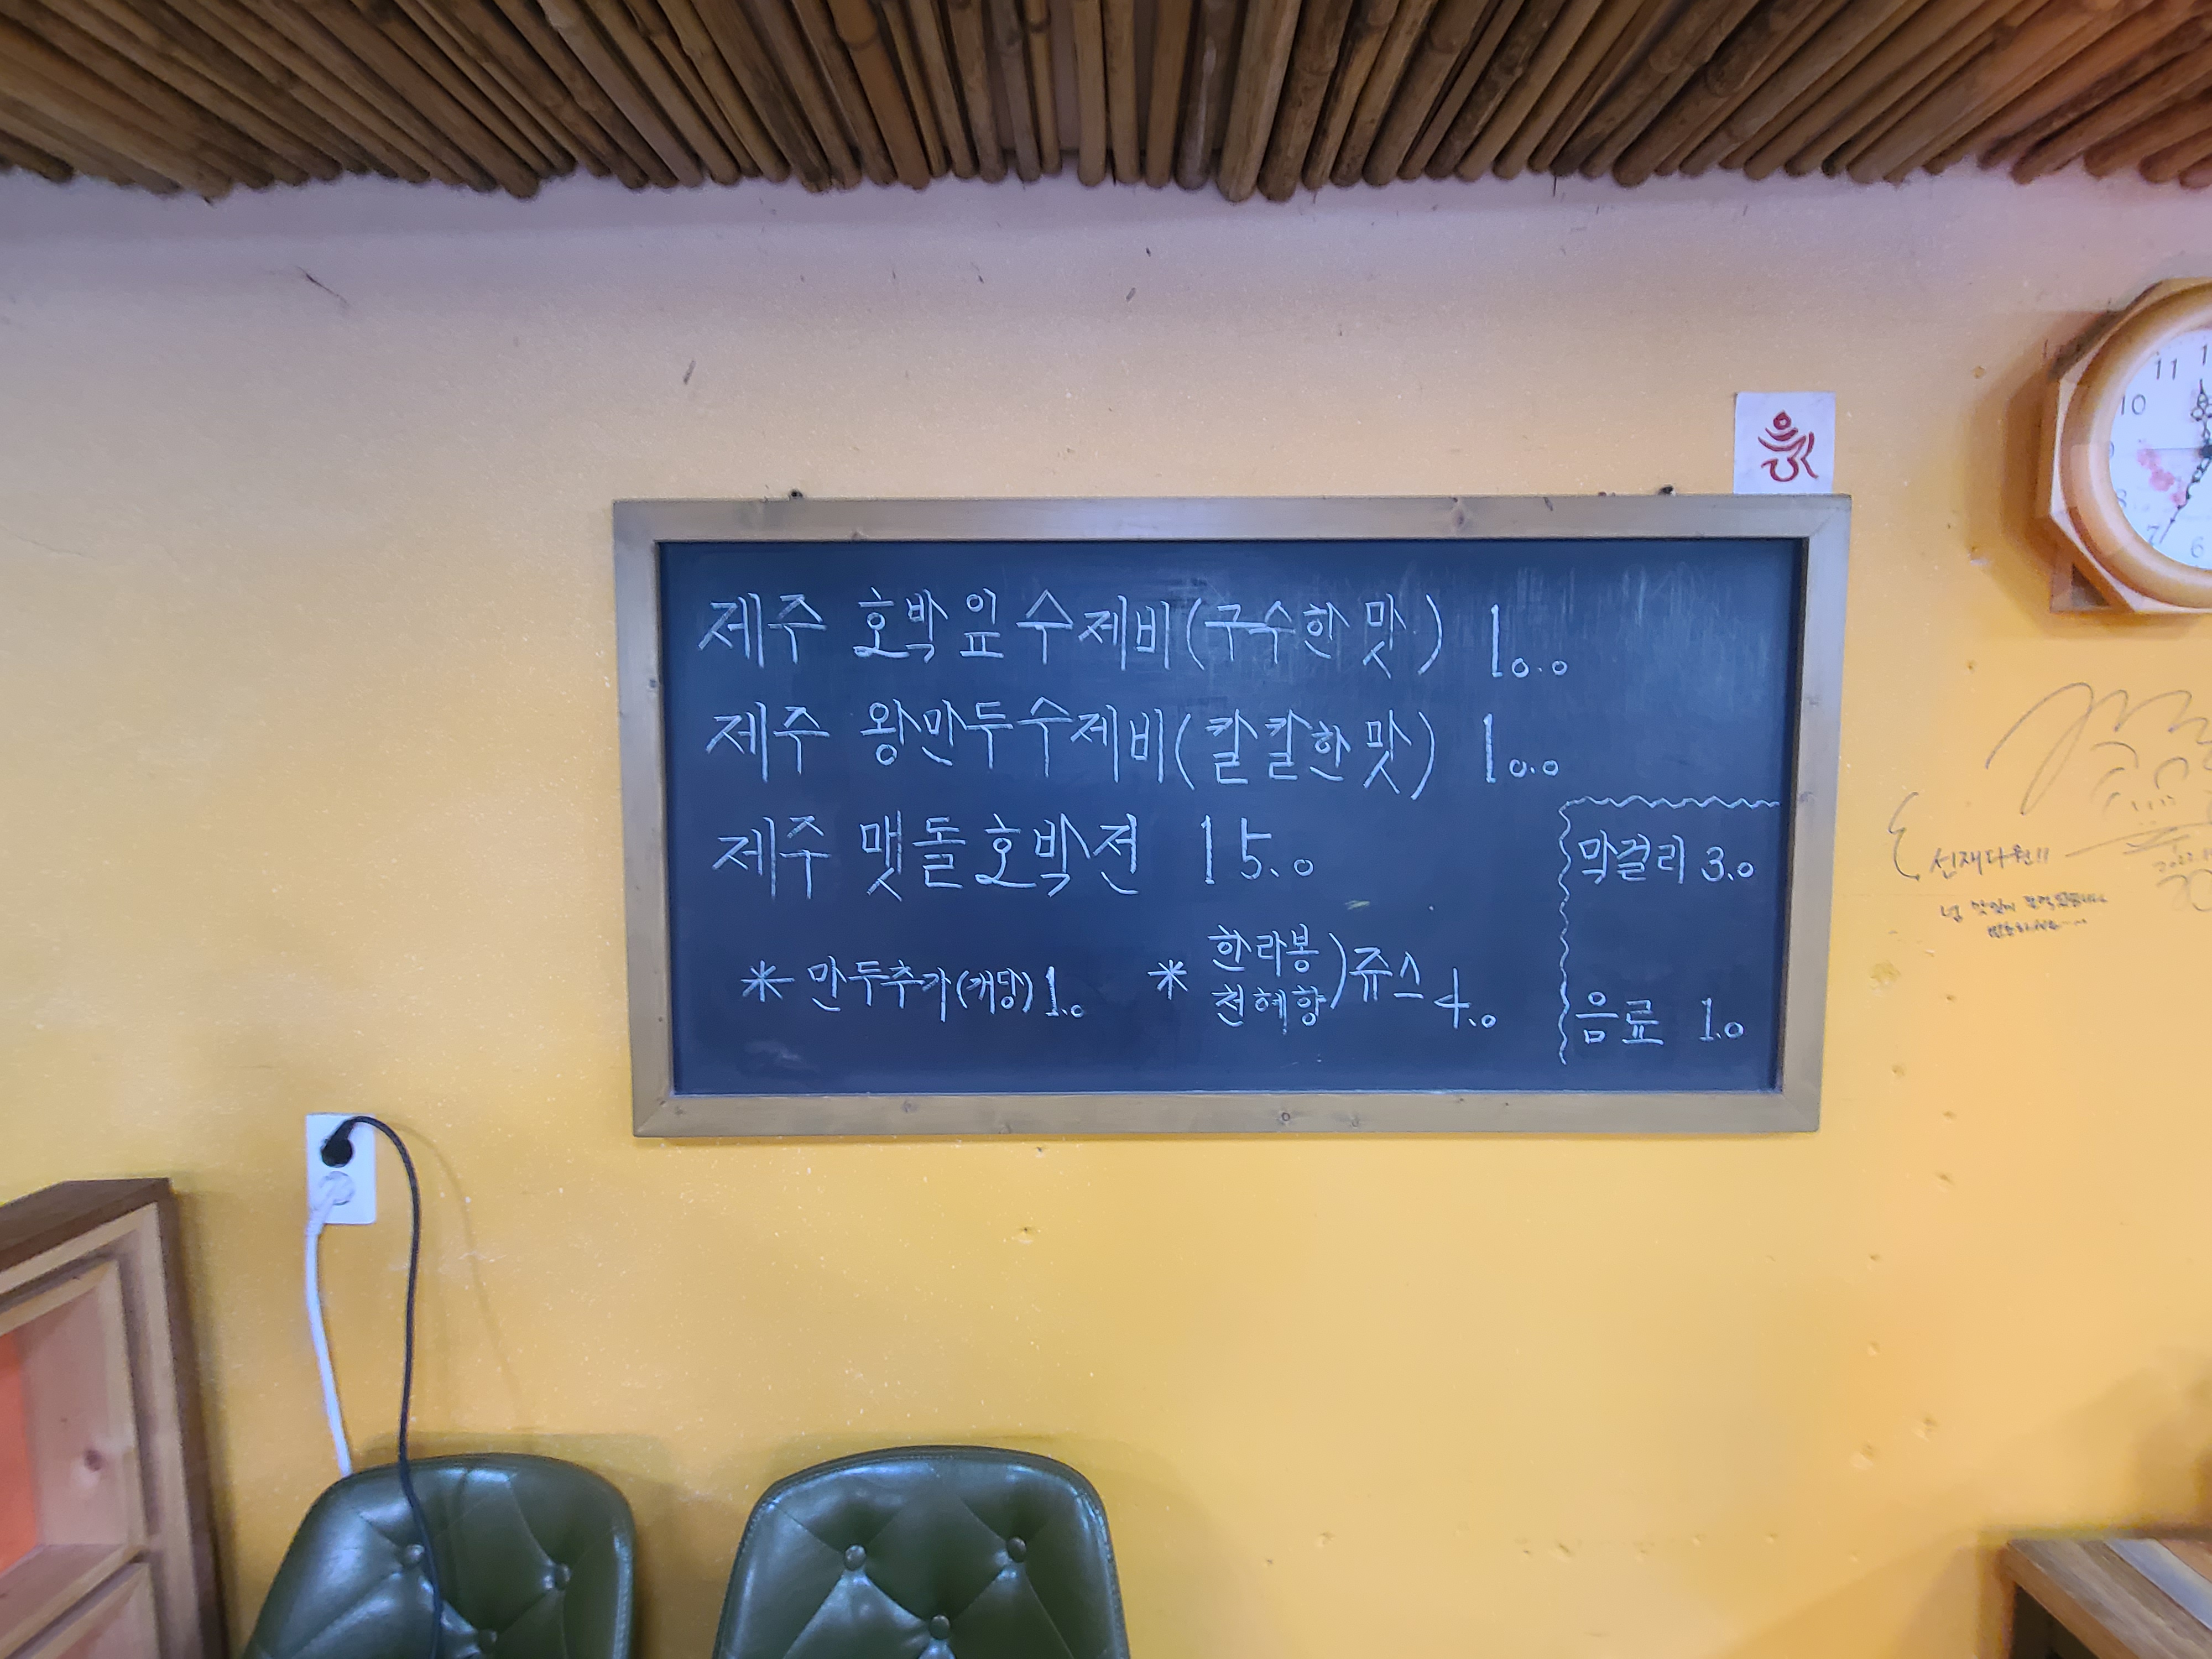 제주 호박잎 수제비(구수한 맛) 10.0
제주 왕만두수제비(칼칼한맛) 10.0
제주 맷돌호박전 15.0
막걸리 3.0
* 만두추가(개당) 1.0
* 한라봉
천혜향
)쥬스 4.0
음료 1.0
선재다원!!
11
10
8
7
6